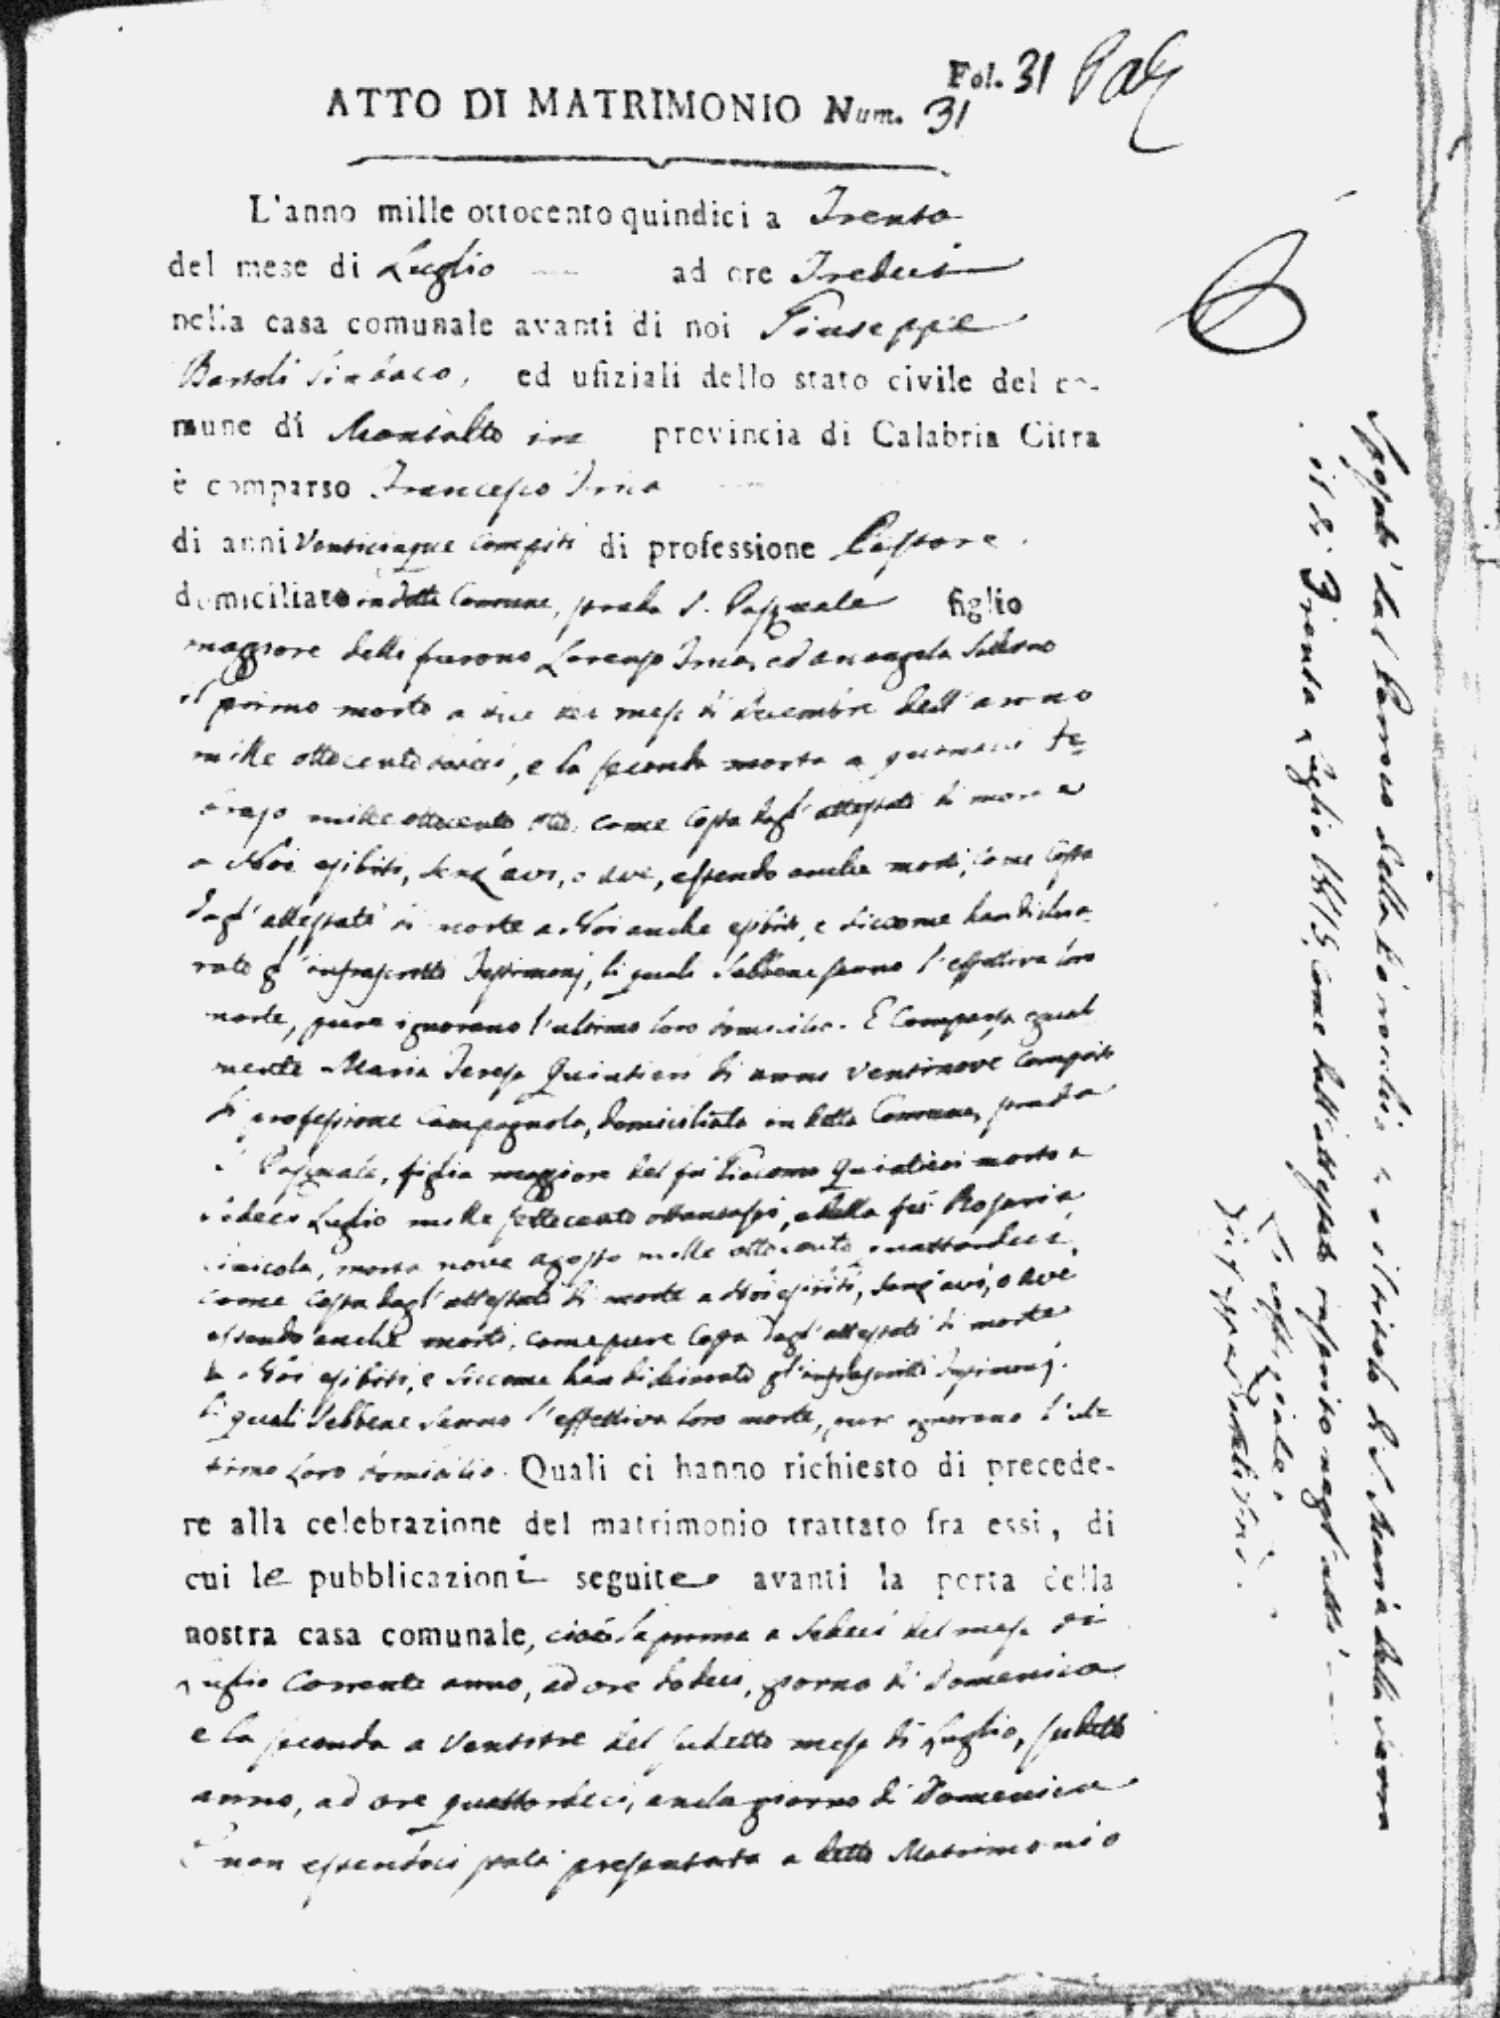 Fol. 31
ATTO DI MATRIMONIO Num. 31
L'anno mille ottocento quindici a Trenta
del mese di Luglio ad ore Tredici
nella casa comunale avanti di noi Giuseppe
Bartoli Sindaco, ed ufiziali dello stato civile del co-
mune di Montalto in provincia di Calabria Citra
è comparso Francesco
di anni Venticinque compiti di professione Pastore
domiciliato in detta Comune, strada S. Pasquale figlio
maggiore delli furono Lorenzo ed Arcangela
il primo morto a due del mese di decembre dell'anno
mille ottocento, e la seconda morta a Fe-
brajo mille ottocento otto come costa dagl'attestati di morte
a Noi esibiti, senz'avi, o ave, essendo anche morti, come costa
dagl'attestati di morte a Noi anche esibiti, e siccome han dichia-
rato gl'infrascritti Testimonj, li quali sebbene sanno l'effettiva loro
morte, pure ignorano l'ultimo loro domicilio. E comparsa egual
mente Maria Teresa Quintieri di anni ventinove compiti
di professione Campagnola, domiciliata in detta Comune, strada
S. Pasquale, figlia maggiore del fu Giacomo Quintieri morto a
sedeci Luglio mille settecento ottantasei, e della fu Rosaria
morta nove agosto mille ottocento quattordeci,
come costa dagl'attestati di morte a Noi esibiti, senz'avi, o ave
essendo anche morti, come pure costa dagl'attestati di morte
a Noi esibiti, e siccome han dichiarato gl'infrascritti Testimonj.
li quali sebbene sanno l'effettiva loro morte, pure ignorano l'ul
timo loro domicilio. Quali ci hanno richiesto di precede-
re alla celebrazione del matrimonio trattato fra essi, di
cui le pubblicazioni seguite avanti la porta della
nostra casa comunale, cioè la prima a sedeci del mese di
Luglio corrente anno, ad ore dodeci, giorno di Domenica
e la seconda a ventitre del sudetto mese di Luglio, sudetto
anno, ad ore quattordeci, anche giorno di Domenica
E non essendoci stata presentata a detto Matrimonio
Sposati dal Parroco della Parrocchia sotto il titolo di S. Maria della Serra
il dì Trenta Luglio 1815, come dall'attestato inserito negl'atti